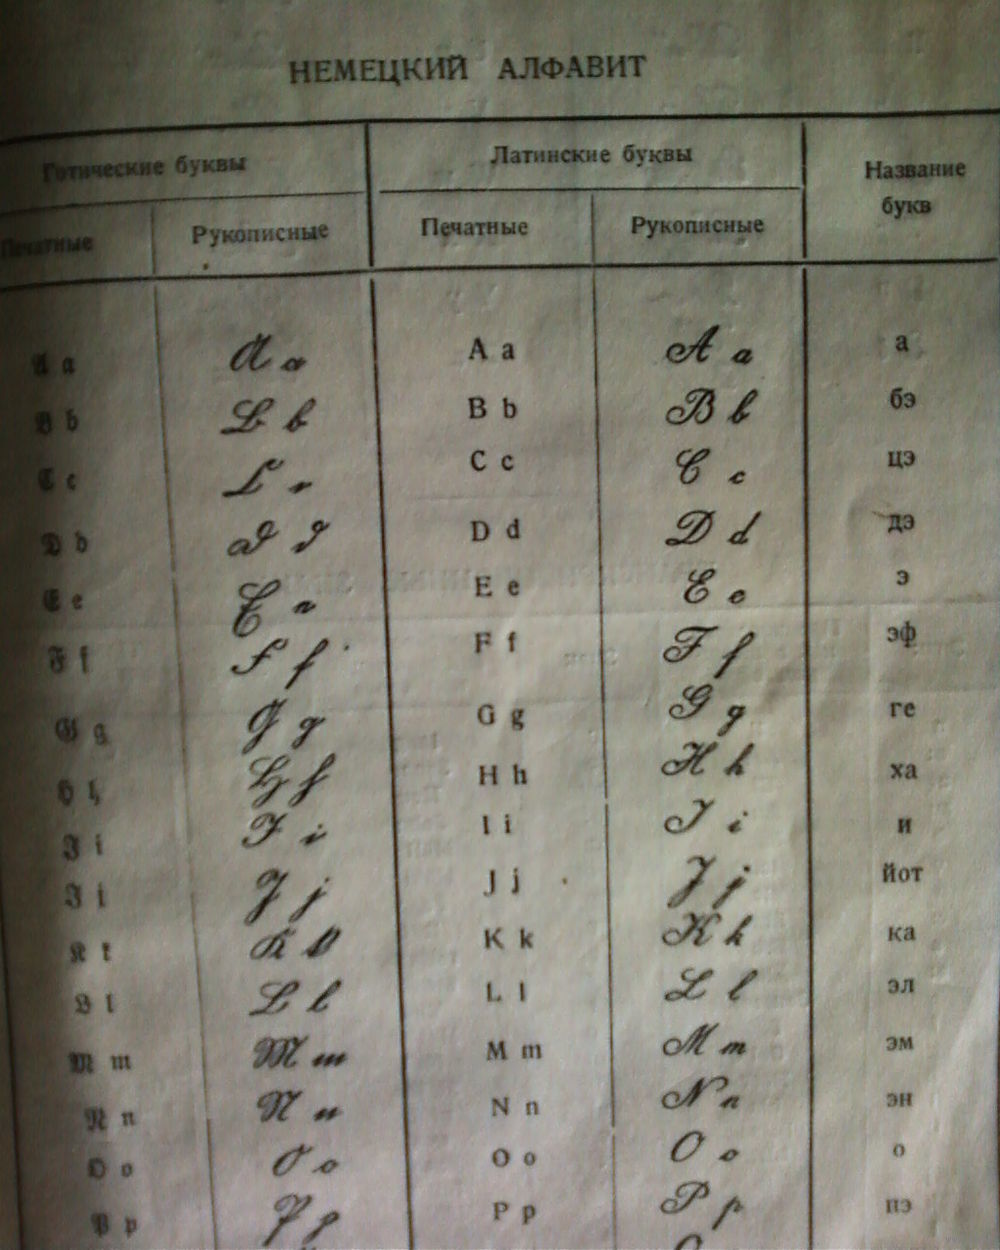 НЕМЕЦКИЙ АЛФАВИТ
Готические буквы Латинские буквы Название букв
Печатные Рукописные Печатные Рукописные
A a A a A a A a а
B b B b B b B b бэ
C c C c C c C c цэ
D d D d D d D d дэ
E e E e E e E e э
F f F f F f F f эф
G g G g G g G g ге
H h H h H h H h ха
I i I i I i I i и
J j J j J j J j йот
K k K k K k K k ка
L l L l L l L l эл
M m M m M m M m эм
N n N n N n N n эн
O o O o O o O o о
P p P p P p P p пэ